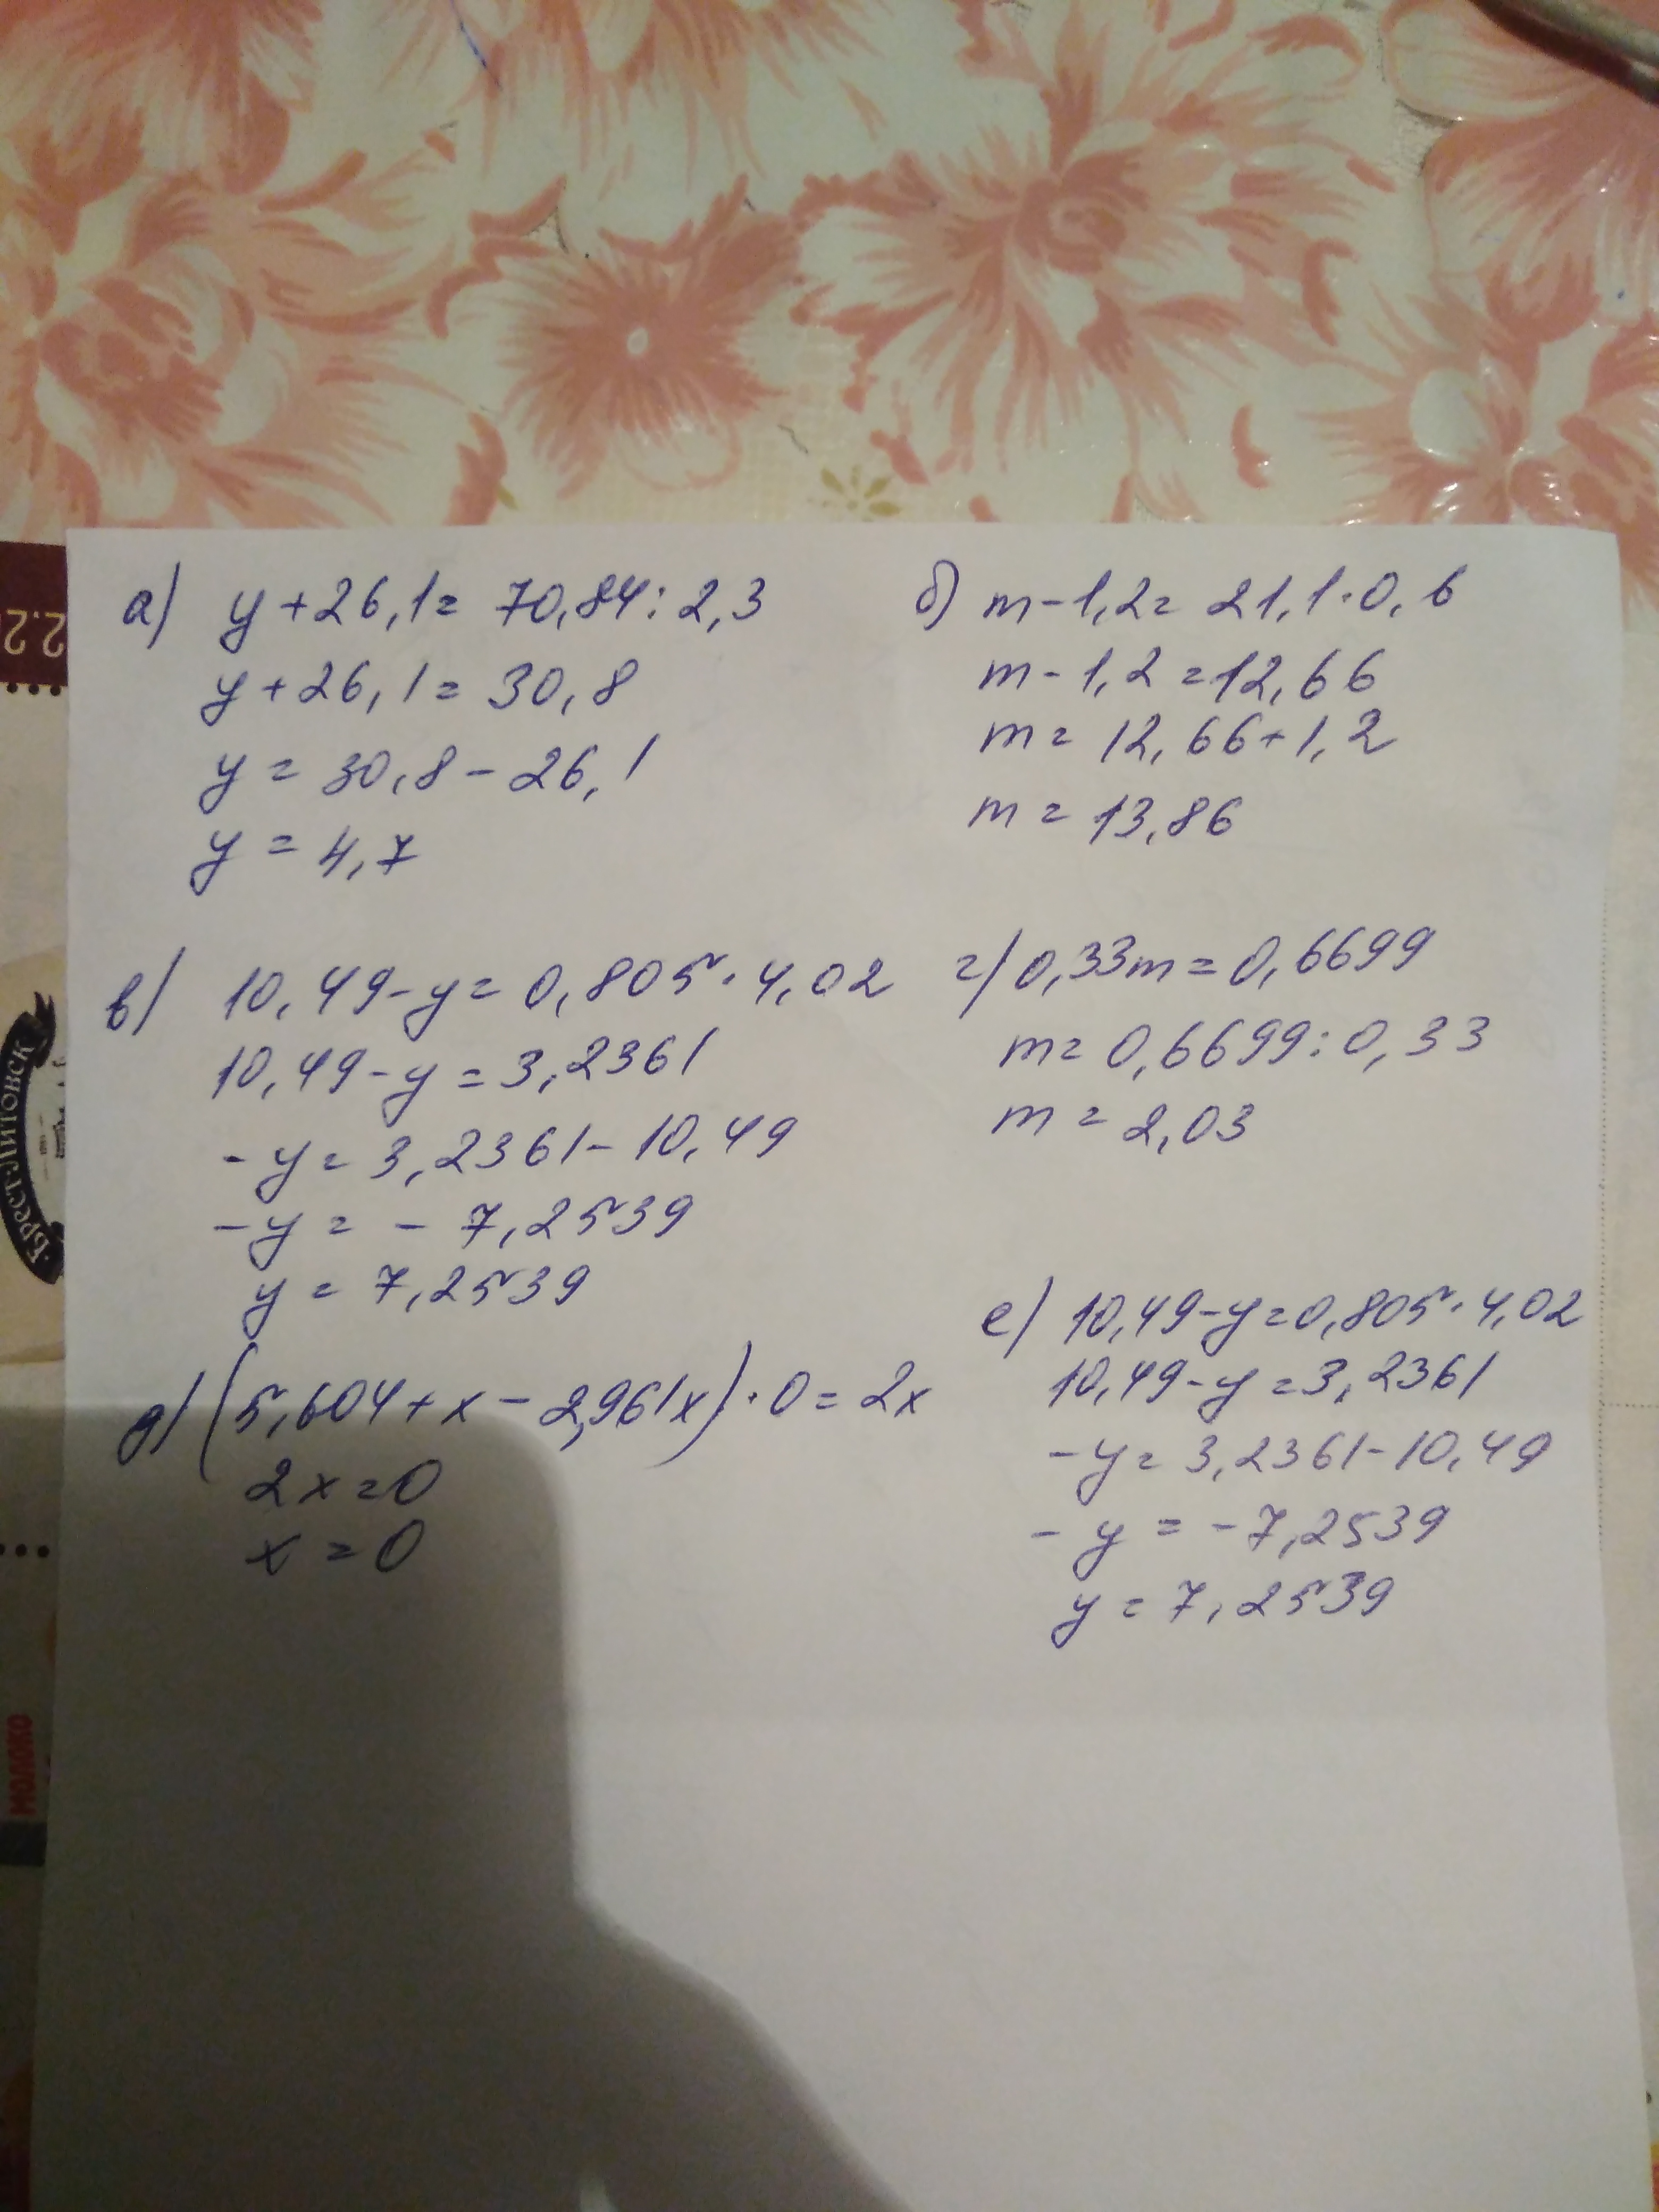 а) y+26,1= 70,84:2,3
y+26,1= 30,8
y = 30,8-26,1
y = 4,7
б) m-1,2= 21,1·0,6
m-1,2=12,66
m= 12,66+1,2
m= 13,86
в) 10,49-y= 0,805·4,02
10,49-y=3,2361
-y= 3,2361-10,49
-y= -7,2539
y= 7,2539
г) 0,33m=0,6699
m=0,6699:0,33
m=2,03
д) (5,604+x-2,961x)·0=2x
2x=0
x=0
е) 10,49-y=0,805·4,02
10,49-y=3,2361
-y=3,2361-10,49
-y=-7,2539
y=7,2539
2.2
БРЕСТ-ЛИТОВСК
МОЛОКО